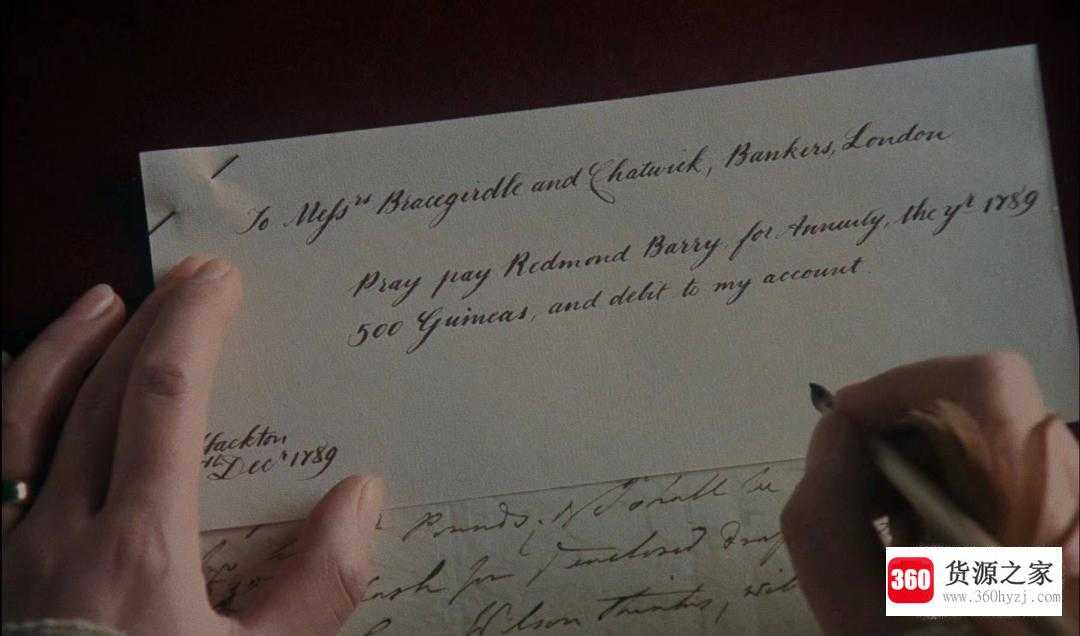 To Mefsrs Bracegirdle and Chatwick, Bankers, London
Pray pay Redmond Barry for Annuity, the yr 1789
500 Guineas, and debit to my account.
Hackton
Decr 1789
Pounds, I shall be
for enclosed
thinks,
360 货源之家
www.360hyzj.com